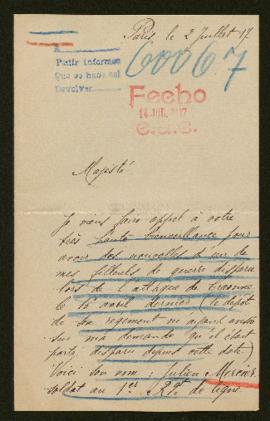 Paris le 2 Juillet 17.
A
Pedir informes
Que se hade
Devolver
60067
Fecho
Majesté
Je viens faire appel à votre
très haute bienveillance pour
avoir des nouvelles sur
mes filleuls de guerre disparu
lors de l'attaque de Craonne
le 16 avril dernier (le dépôt
de son régiment
sur ma demande qu'il était
porté disparu depuis cette date)
Voici son nom : Julien Mercier
soldat au 1er Rgt de ligne.